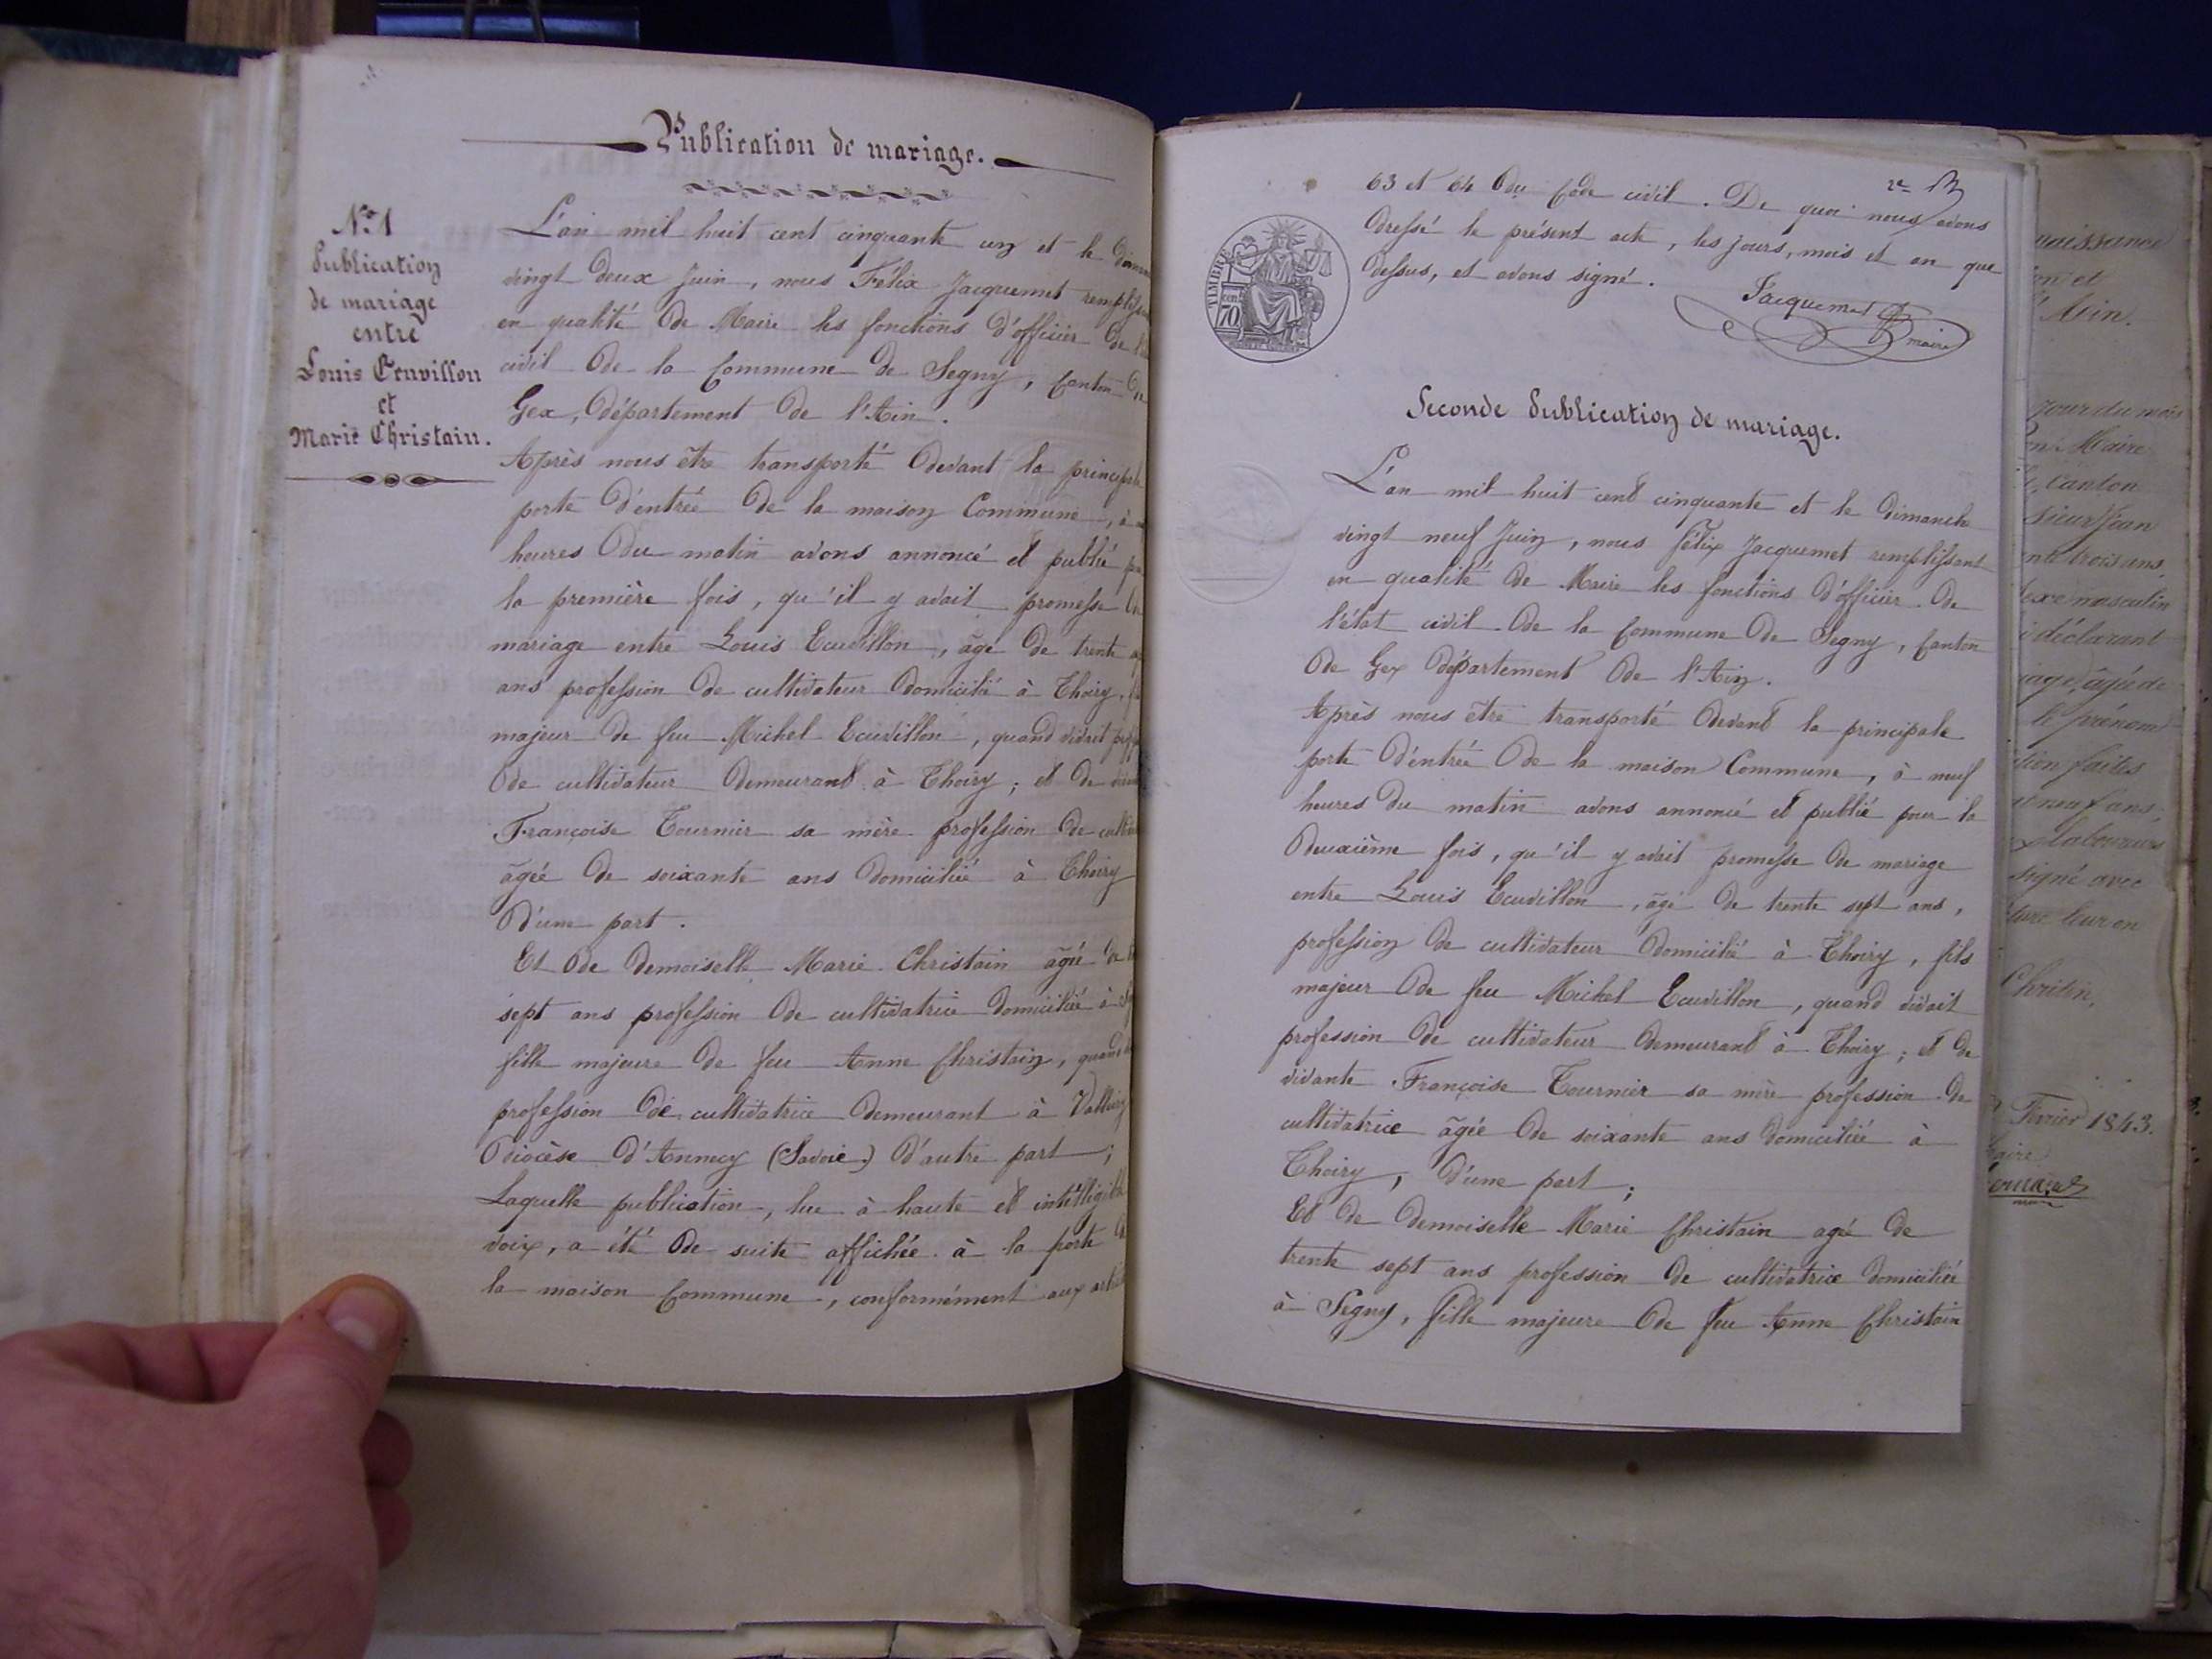 Publication de mariage.
N.º 1
Publication
de mariage
entre
Louis Ecuvillon
et
Marie Christain.
L'an mil huit cent cinquante un et le
vingt deux Juin, nous Félix Jacquemet
en qualité de Maire les fonctions d'officier de
civil de la Commune de Segny, Canton de
Gex, Département de l'Ain.
Après nous être transporté devant la principale
porte d'entrée de la maison Commune, à
heures du matin avons annoncé et publié
la première fois, qu'il y avait promesse
mariage entre Louis Ecuvillon, âgé de trente
ans profession de cultivateur domicilié à Thoiry,
majeur de feu Michel Ecuvillon, quand vivait
de cultivateur demeurant à Thoiry; et de
Françoise Tournier sa mère profession de
âgée de soixante ans domiciliée à Thoiry
D'une part.
Et de Demoiselle Marie Christain âgée de
sept ans profession de cultivatrice domiciliée à
fille majeure de feu Anne Christain, quand
profession de cultivatrice demeurant à
Diocèse d'Annecy (Savoie) d'autre part;
Laquelle publication, lue à haute et intelligible
voix, a été de suite affichée à la porte
la maison Commune, conformément aux
2e
63 et 64 du Code civil. De quoi nous avons
dressé le présent acte, les jours, mois et an que
dessus, et avons signé.
Jacquemet
maire
TIMBRE
70
Seconde Publication de mariage.
L'an mil huit cent cinquante et le dimanche
vingt neuf Juin, nous Félix Jacquemet remplissant
en qualité de Maire les fonctions d'officier de
l'état civil de la Commune de Segny, Canton
de Gex département de l'Ain.
Après nous être transporté devant la principale
porte d'entrée de la maison Commune, à neuf
heures du matin avons annoncé et publié pour la
deuxième fois, qu'il y avait promesse de mariage
entre Louis Ecuvillon, âgé de trente sept ans,
profession de cultivateur domicilié à Thoiry, fils
majeur de feu Michel Ecuvillon, quand vivait
profession de cultivateur demeurant à Thoiry; et de
vivante Françoise Tournier sa mère profession de
cultivatrice âgée de soixante ans domiciliée à
Thoiry, d'une part;
Et de Demoiselle Marie Christain agée de
trente sept ans profession de cultivatrice domiciliée
à Segny, fille majeure de feu Anne Christain
Ain.
Maire
Canton
trois ans
masculin
déclarant
âgé de
le prénom
faites
neuf ans,
signé avec
Christin,
Février 1843.